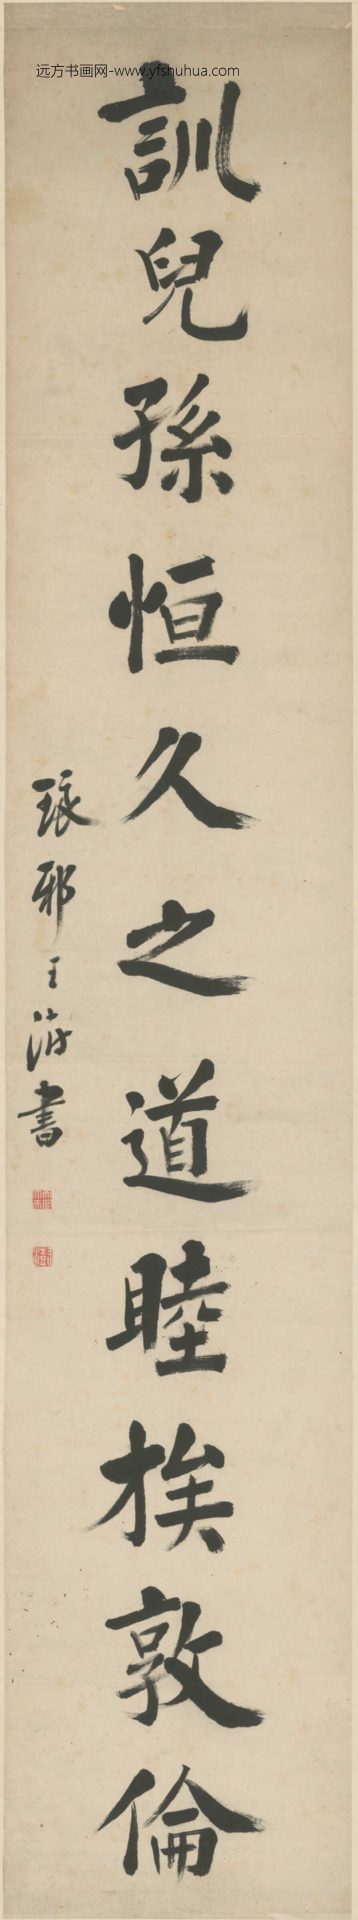 远方书画网-www.yfshuhua.com
訓兒孫恒久之道睦族敦倫
琅邪王澍書